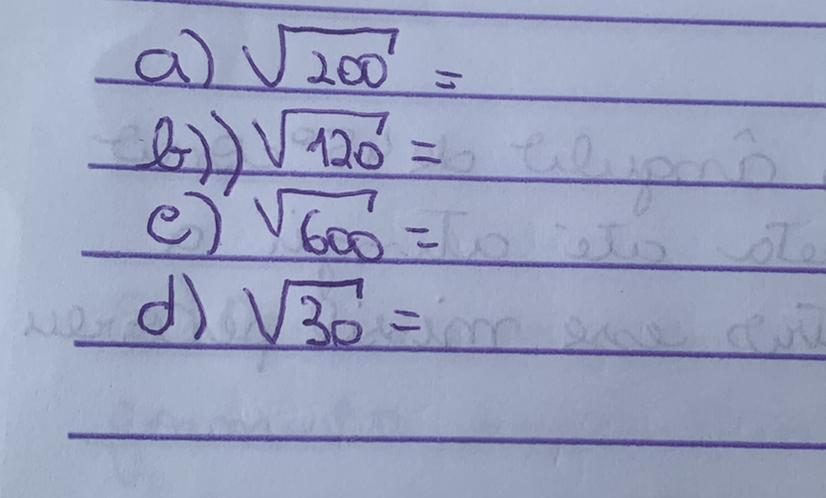 a) √200 =
b)) √120 =
c) √600 =
d) √30 =